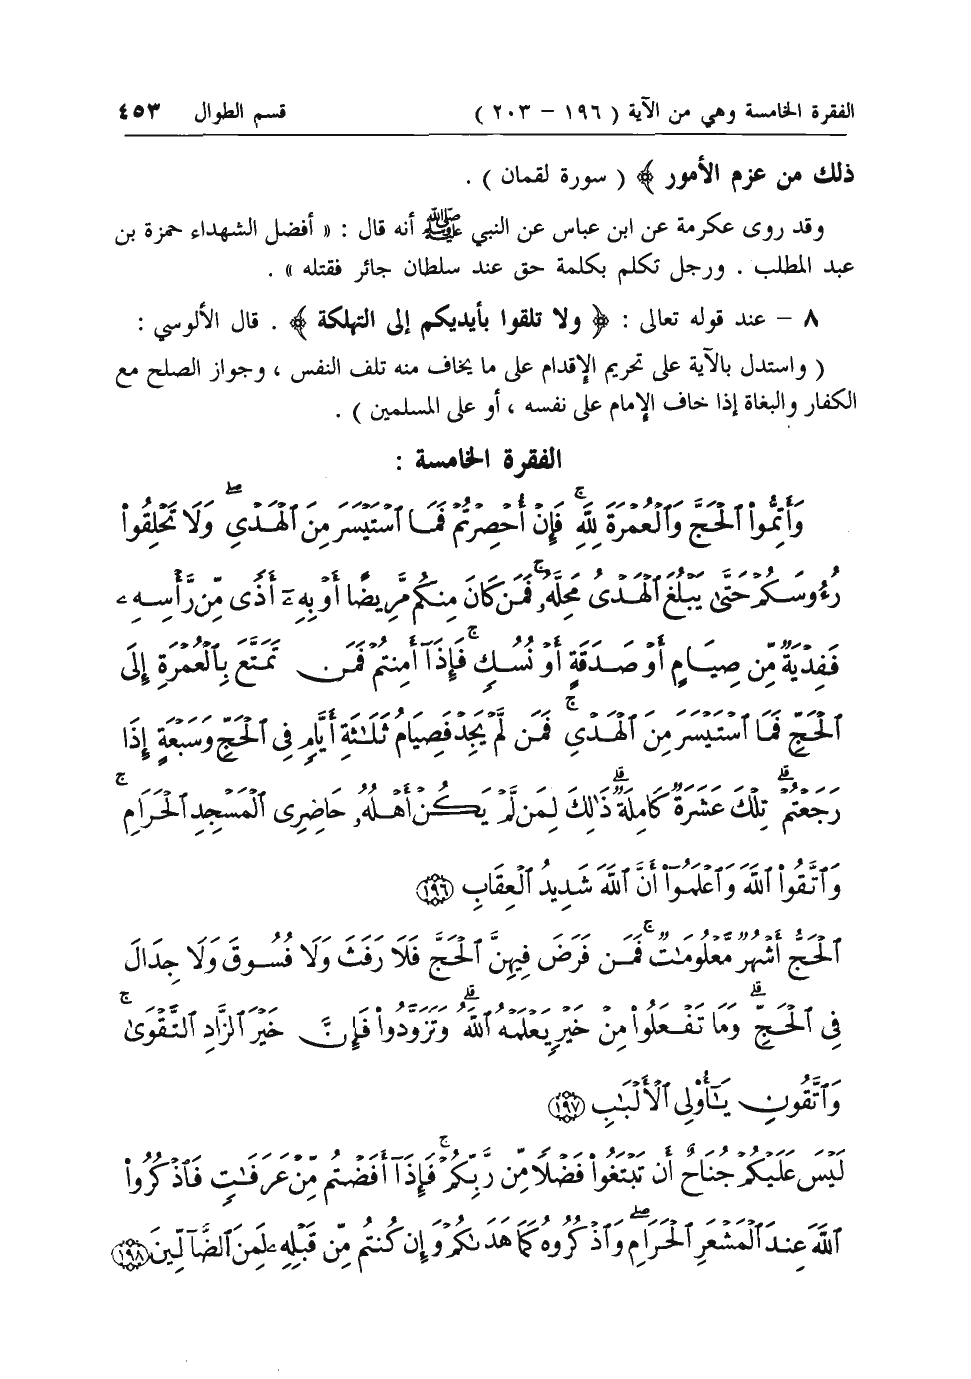 الفقرة الخامسة وهي من الآية ( ١٩٦ – ٢٠٣ ) قسم الطوال ٤٥٣
ذلك من عزم الأمور ﴾ ( سورة لقمان ) .
وقد روى عكرمة عن ابن عباس عن النبي ﷺ أنه قال : « أفضل الشهداء حمزة بن
عبد المطلب . ورجل تكلم بكلمة حق عند سلطان جائر فقتله » .
٨ – عند قوله تعالى : ﴿ ولا تلقوا بأيديكم إلى التهلكة ﴾ . قال الألوسي :
( واستدل بالآية على تحريم الإقدام على ما يخاف منه تلف النفس ، وجواز الصلح مع
الكفار والبغاة إذا خاف الإمام على نفسه ، أو على المسلمين ) .
الفقرة الخامسة :
وَأَتِمُّوا۟ ٱلْحَجَّ وَٱلْعُمْرَةَ لِلَّهِ ۚ فَإِنْ أُحْصِرْتُمْ فَمَا ٱسْتَيْسَرَ مِنَ ٱلْهَدْىِ ۖ وَلَا تَحْلِقُوا۟
رُءُوسَكُمْ حَتَّىٰ يَبْلُغَ ٱلْهَدْىُ مَحِلَّهُۥ ۚ فَمَن كَانَ مِنكُم مَّرِيضًا أَوْ بِهِۦٓ أَذًى مِّن رَّأْسِهِۦ
فَفِدْيَةٌ مِّن صِيَامٍ أَوْ صَدَقَةٍ أَوْ نُسُكٍ ۚ فَإِذَآ أَمِنتُمْ فَمَن تَمَتَّعَ بِٱلْعُمْرَةِ إِلَى
ٱلْحَجِّ فَمَا ٱسْتَيْسَرَ مِنَ ٱلْهَدْىِ ۚ فَمَن لَّمْ يَجِدْ فَصِيَامُ ثَلَـٰثَةِ أَيَّامٍ فِى ٱلْحَجِّ وَسَبْعَةٍ إِذَا
رَجَعْتُمْ ۗ تِلْكَ عَشَرَةٌ كَامِلَةٌ ۗ ذَٰلِكَ لِمَن لَّمْ يَكُنْ أَهْلُهُۥ حَاضِرِى ٱلْمَسْجِدِ ٱلْحَرَامِ ۚ
وَٱتَّقُوا۟ ٱللَّهَ وَٱعْلَمُوٓا۟ أَنَّ ٱللَّهَ شَدِيدُ ٱلْعِقَابِ ١٩٦
ٱلْحَجُّ أَشْهُرٌ مَّعْلُومَـٰتٌ ۚ فَمَن فَرَضَ فِيهِنَّ ٱلْحَجَّ فَلَا رَفَثَ وَلَا فُسُوقَ وَلَا جِدَالَ
فِى ٱلْحَجِّ ۗ وَمَا تَفْعَلُوا۟ مِنْ خَيْرٍ يَعْلَمْهُ ٱللَّهُ ۗ وَتَزَوَّدُوا۟ فَإِنَّ خَيْرَ ٱلزَّادِ ٱلتَّقْوَىٰ ۚ
وَٱتَّقُونِ يَـٰٓأُو۟لِى ٱلْأَلْبَـٰبِ ١٩٧
لَيْسَ عَلَيْكُمْ جُنَاحٌ أَن تَبْتَغُوا۟ فَضْلًا مِّن رَّبِّكُمْ ۚ فَإِذَآ أَفَضْتُم مِّنْ عَرَفَـٰتٍ فَٱذْكُرُوا۟
ٱللَّهَ عِندَ ٱلْمَشْعَرِ ٱلْحَرَامِ ۖ وَٱذْكُرُوهُ كَمَا هَدَىٰكُمْ وَإِن كُنتُم مِّن قَبْلِهِۦ لَمِنَ ٱلضَّآلِّينَ ١٩٨